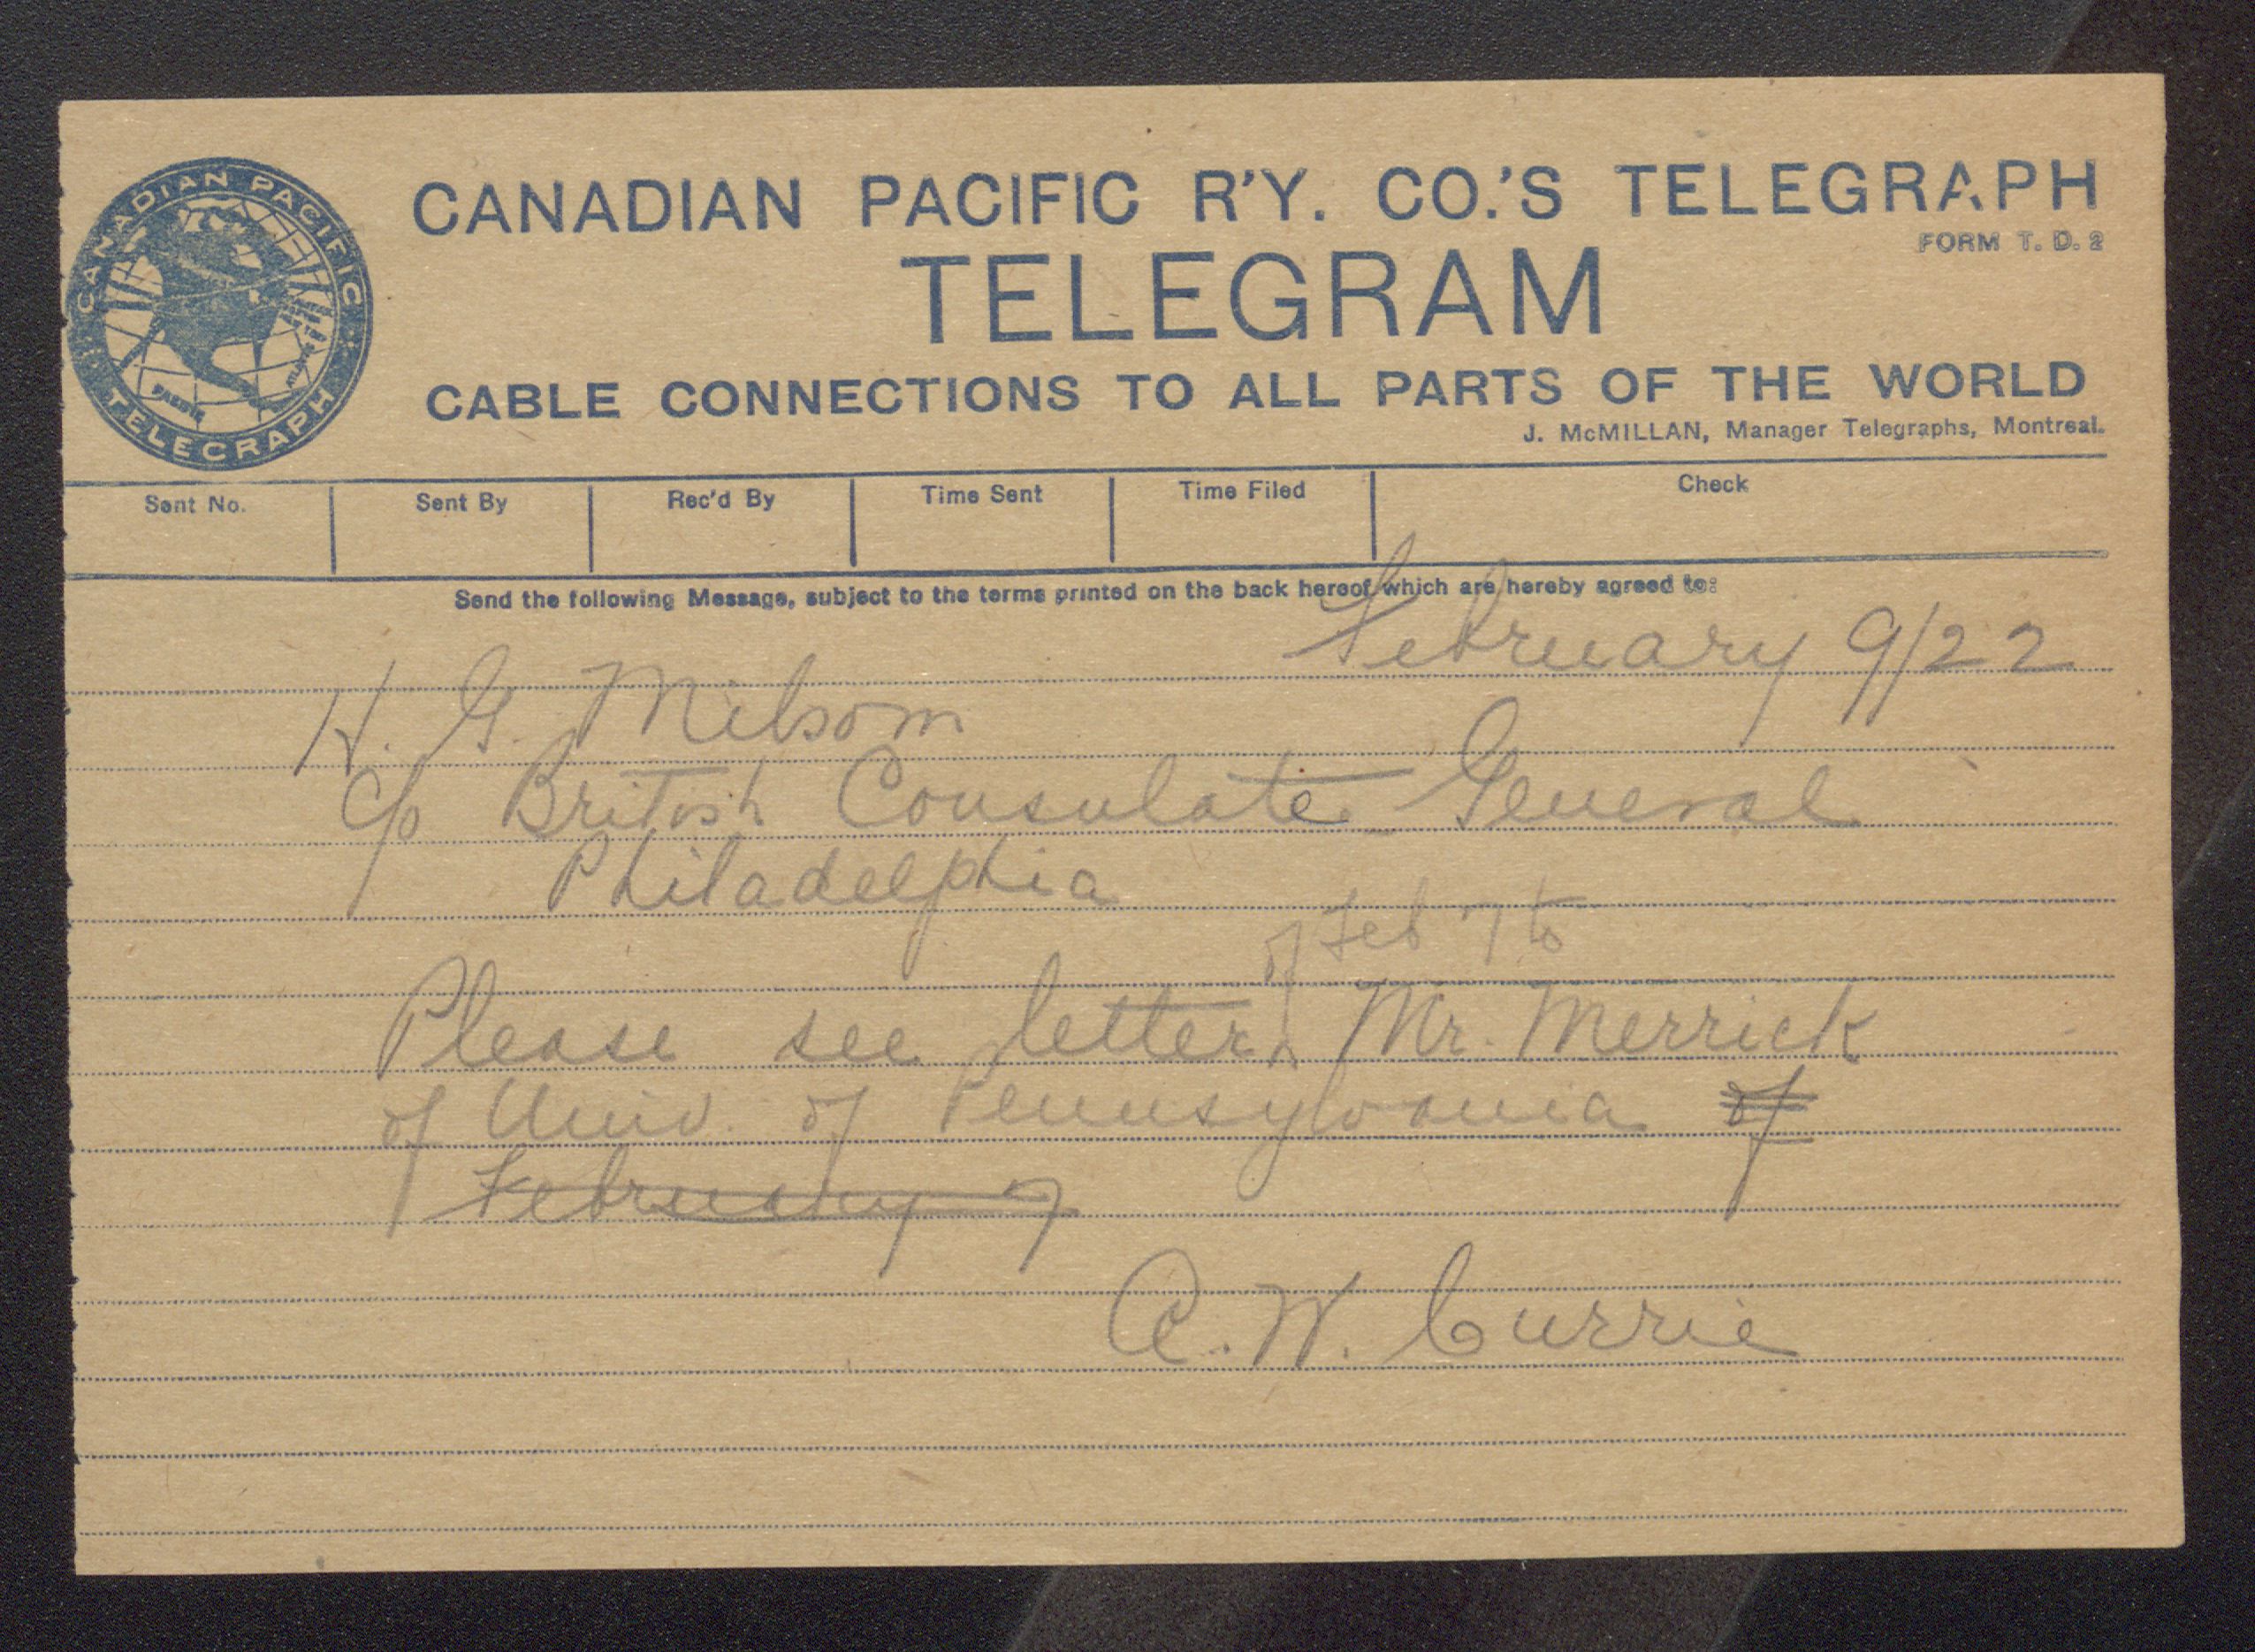 CANADIAN PACIFIC
TELEGRAPH
PACIFIC
CANADIAN PACIFIC R'Y. CO.'S TELEGRAPH
FORM T. D. 2
TELEGRAM
CABLE CONNECTIONS TO ALL PARTS OF THE WORLD
J. McMILLAN, Manager Telegraphs, Montreal.
Sent No. Sent By Rec'd By Time Sent Time Filed Check
Send the following Message, subject to the terms printed on the back hereof which are hereby agreed to:
February 9/22
H. G. Milsom
c/o British Consulate General
Philadelphia
of Feb 7 to
Please see letter Mr. Merrick
of Univ. of Pennsylvania of
February 7
A. W. Currie